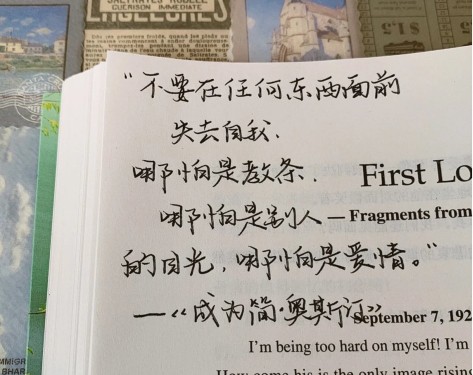 GUERISON IMMEDIATE
"不要在任何东西面前
失去自我.
哪怕是教条.
First Lo
哪怕是别人
— Fragments from
的目光，哪怕是爱情。"
—《成为简·奥斯汀》
September 7, 192
I'm being too hard on myself! I'm
How come his is the only image rising
IMMIGR
BHAR